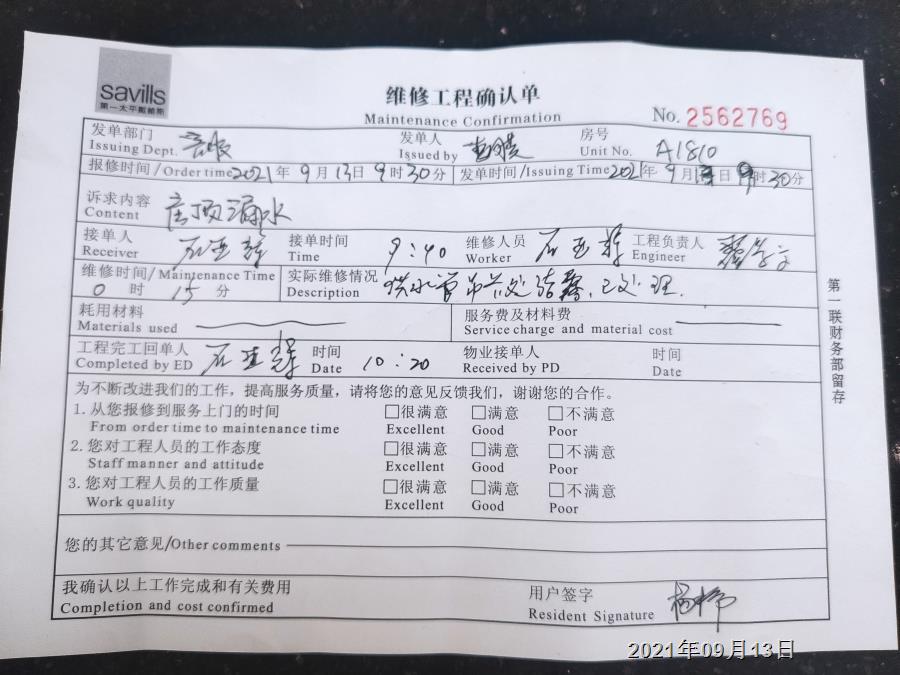 savills
第一太平戴维斯
维修工程确认单
Maintenance Confirmation
No. 2562769
发单部门 客服 发单人 房号
Issuing Dept. Issued by Unit No. A1810
报修时间/Order time 2021年 9月13日 9时30分 发单时间/Issuing Time 2021年 9月13日 9时30分
诉求内容 房顶漏水
Content
接单人 石亚辉 接单时间 9:40 维修人员 石亚辉 工程负责人
Receiver Time Worker Engineer
维修时间/Maintenance Time 实际维修情况 供水管吊兰处结露,已处理.
0时15分 Description
耗用材料 服务费及材料费
Materials used Service charge and material cost
工程完工回单人 石亚辉 时间 10:20 物业接单人 时间
Completed by ED Date Received by PD Date
为不断改进我们的工作,提高服务质量,请将您的意见反馈我们,谢谢您的合作。
1. 从您报修到服务上门的时间 □很满意 □满意 □不满意
From order time to maintenance time Excellent Good Poor
2. 您对工程人员的工作态度 □很满意 □满意 □不满意
Staff manner and attitude Excellent Good Poor
3. 您对工程人员的工作质量 □很满意 □满意 □不满意
Work quality Excellent Good Poor
您的其它意见/Other comments
我确认以上工作完成和有关费用 用户签字
Completion and cost confirmed Resident Signature
第一联财务部留存
2021年09月13日